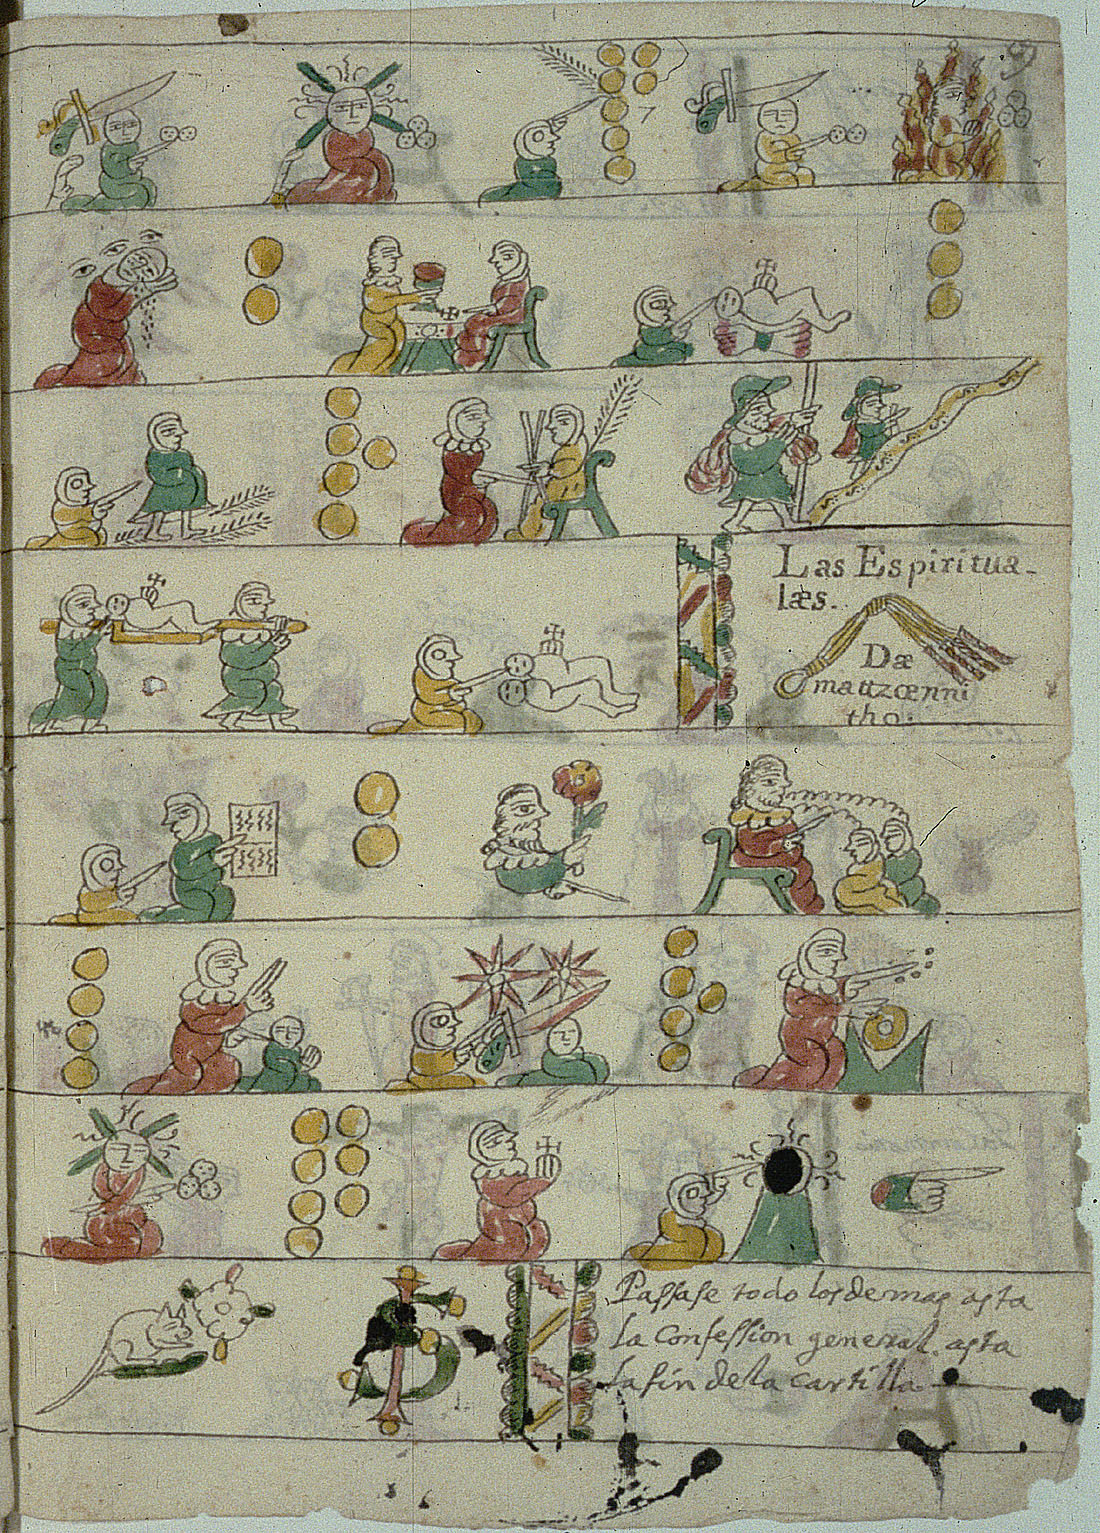 9
7
Las Espiritua-
læs.
Dæ
mattzœnni
tho:
Passase todo los demas asta
la Confession general. asta
la fin dela cartilla